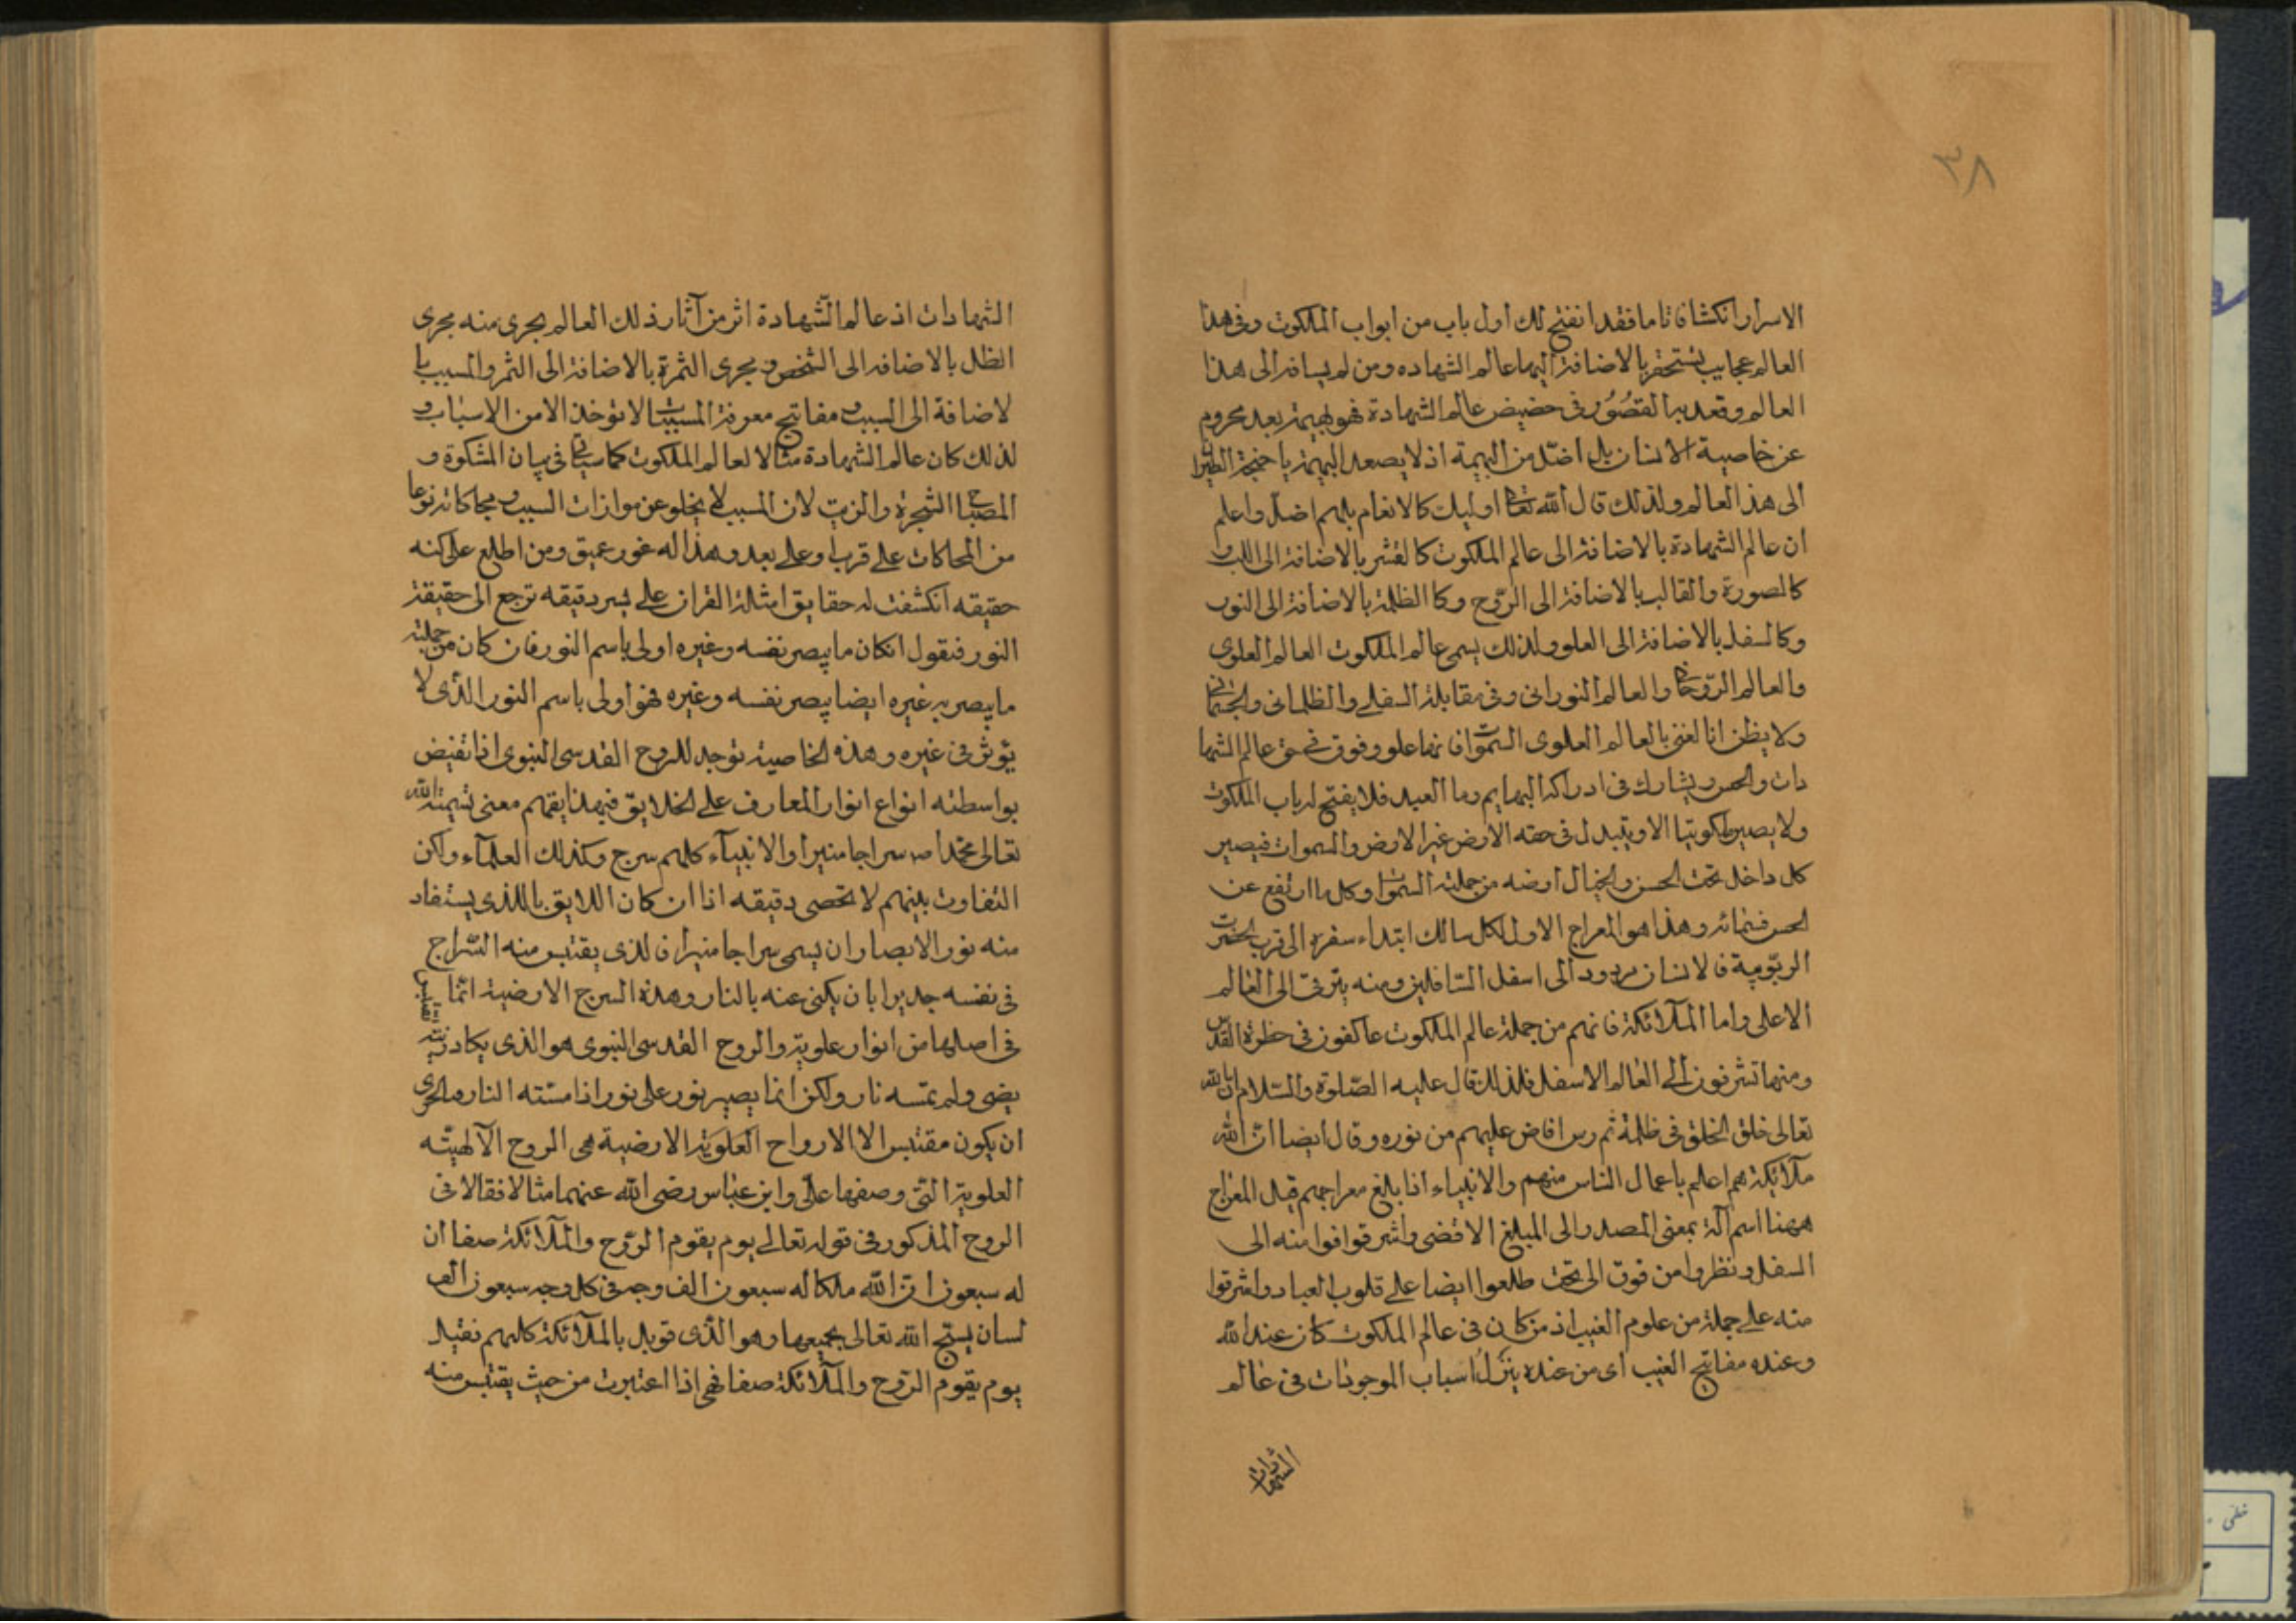 ٣٨
الاسرار انكشافا تاما فقد انفتح لك اول باب من ابواب الملكوت وفى هذا
العالم عجايب يستحقر بالاضافة اليها عالم الشهاده ومن لم يسافر الى هذا
العالم وقعد به القصُوُر فى حضيض عالم الشهادة فهو بهيمة بعد محروم
عن خاصية الانسان بل اضلّ من البهيمة اذ لا يصعد البهيمة باجنحة الطيران
الى هذ العالم ولذلك قال الله تعالى اوليك كالانعام بلهم اضل واعلم
ان عالم الشهادة بالاضافة الى عالم الملكوت كالقشر بالاضافة الى اللب و
كالصورة والقالب بالاضافة الى الرّوح وكا الظلمة بالاضافة الى النور
وكالسفل بالاضافة الى العلو ولذلك يسمى عالم الملكوت العالم العلوى
والعالم الرّوحانى والعالم النورانى وفى مقابلة السفلى والظلمانى والجسمانى
ولا يظن انا لغنى بالعالم العلوى السموات فانها علو وفوق فى حق عالم الشها
دات والحس ويشارك فى ادراكه البهايم وما العبد فلا يفتح له باب الملكوت
ولا يصير ملكوتيا الا ويتبدل فى حقه الارض غير الارض والسموات فيصير
كل داخل تحت الحس والخيال ارضه من جملته السموات وكل ما ارتفع عن
الحس فسمائه وهذا هو المعراج الاول لكل سالك ابتداء سفره الى قرب الحضرت
الربّوبية فالانسان مردود الى اسفل السّافلين ومنه يترقى الى العالم
الاعلى واما الملائكة فانهم من جملة عالم الملكوت عاكفون فى حظرة القدس
ومنها تشرفون الى العالم الاسفل فلذلك قال عليه الصّلوة والسّلام ان الله
تعالى خلق الخلق فى ظلمة ثم رس افاض عليهم من نوره وقال ايضا انّ الله
ملائكة هم اعلم باعمال الناس منهم والانبياء اذا بلغ معراجهم قيل المعراج
ههنا اسم آلة بمعنى المصدر الى المبلغ الاقضى واشرقوا فوا منه الى
السفل ونظروا من فوق الى تحت طلعوا ايضا على قلوب العباد واشرقوا
منه على جملة من علوم الغيب اذ من كان فى عالم الملكوت كان عند الله
وعنده مفاتيح الغيب اى من عنده ينزل اسباب الموجودات فى عالم
الشهادات
الشهادات اذ عالم الشّهادة اثر من آثار ذلك العالم يجرى منه مجرى
الظل بالاضافه الى الشخص و مجرى الثمرة بالاضافة الى الثمر والمسبب با
لاضافة الى السبب و مفاتيح معرفة المسببات لا توخذ الا من الاسباب و
لذلك كان عالم الشهادة مثالا لعالم الملكوت كما سياتى فى بيان المشكوة و
المصباح الشجرة والزيت لان المسبب لا يخلو عن موازات السبب و محاكاته نوعا
من المحاكات على قرب او على بعد وهذا له غور عميق ومن اطلع على كنه
حقيقه انكشفت له حقايق امثلة القران على يسر دقيقه ترجع الى حقيقة
النور فنقول انكان ما يبصر نفسه وغيره اولى باسم النور فان كان من جملته
ما يبصر به غيره ايضا يبصر نفسه وغيره فهو اولى باسم النور الذى لا
يؤثر فى غيره وهذه الخاصية توجد للروح القدسى النبوى اذا تفيض
بواسطته انواع انوار المعارف على الخلايق فبهذا يفهم معنى تسمية الله
تعالى محمّدا ص سراجا منيرا والانبيآء كلهم سرج وكذلك العلمآء ولكن
التفاوت بينهم لا تحصى دقيقه اذا ان كان اللايق باللذى يستفاد
منه نور الابصار ان يسمى سراجا منيرا فالذى يقتبس منه السّراج
فى نفسه جديرا بان يكنى عنه بالنار وهذه السرج الارضية انّما تقتبس
فى اصلها من انوار علوية والروح القدسى النبوى هو الذى يكاد زيته
يضى ولم تمسه نار ولكن انما يصير نور على نور اذا مسّته النار و بالحرى
ان يكون مقتبس الا الارواح العلوية الارضية هى الروح الآلهيّه
العلوية التى وصفها علىّ وابن عبّاس رضى الله عنهما مثالا فقالا فى
الروح المذكور فى قوله تعالى يوم يقوم الرّوح والملآئكة صفا ان
له سبعون ان الله ملكا له سبعون الف وجه فى كل وجه سبعون الف
لسان يسبّح الله تعالى بجميعها وهو الذى قوبل بالملآئكة كلهم فقيل
يوم يقوم الرّوح والملآئكة صفا فهى اذا اعتبرت من حيث يقتبس منه